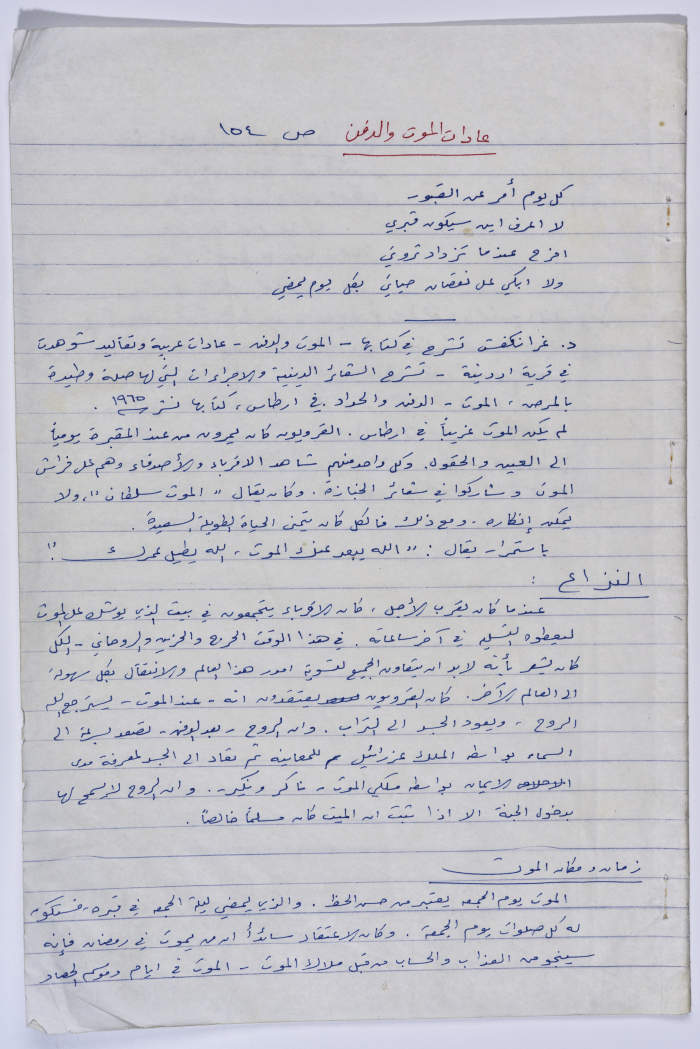 عادات الموت والدفن ص ١٥٤
كل يوم أمر عن القبور
لا اعرف اين سيكون قبري
افرح عندما تزداد ثروتي
ولا ابكي على نقصان حياتي بكل يوم يمضي
د. غرانكفست تشرح في كتابها - الموت والدفن - عادات عربية وتقاليد شوهدت
في قرية اردنية - تشرح الشعائر الدينية والاجراءات التي لها صلة وطيدة
بالمرض، الموت - الدفن والحداد في ارطاس، كتابها نشر ١٩٦٥ .
لم يكن الموت غريباً في ارطاس . القرويون كان يمرون من عند المقبرة يومياً
الى العين والحقول. وكل واحد منهم شاهد الاقرباء والأصدقاء وهم على فراش
الموت وشاركوا في شعائر الجنازة. وكان يقال " الموت سلطان "، ولا
يمكن إنكاره. ومع ذلك فالكل كان يتمنى الحياة الطويلة السعيدة .
باستمرار يقال : " الله يبعد عنك الموت، الله يطيل عمرك "!
النزاع :
عندما كان يقرب الأجل، كان الاقرباء يتجمعون في بيت الذي يوشك على الموت
ليعطوه التسليم في آخر ساعاته. في هذا الوقت الحرج والحزين والروحاني - الكل
كان يشعر بأنه لابد ان يتعاون الجميع لتسوية امور هذا العالم والانتقال بكل سهولة
الى العالم الآخر. كان القرويون يعتقدون انه - عند الموت - يسترجع الله
الروح، ويعود الجسد الى التراب . وان الروح - بعد الدفن - تصعد بسرعة الى
السماء بواسطة الملك عزرائيل للمعاينة ثم تعاد الى الجسد لمعرفة مدى
الايمان بواسطة ملكي الموت - ناكر ونكير. وان الروح لا يسمح لها
بدخول الجنة الا اذا ثبت ان الميت كان مسلماً خالصاً .
زمان ومكان الموت
الموت يوم الجمعه يعتبر من حسن الحظ . والذي يمضي ليلة الجمعه في قبره، فستكون
له كل صلوات يوم الجمعة . وكان الاعتقاد سائداً ان من يموت في رمضان فإنه
سينجو من العذاب والحساب من قبل ملاك الموت - الموت في ايام وموسم الحصاد